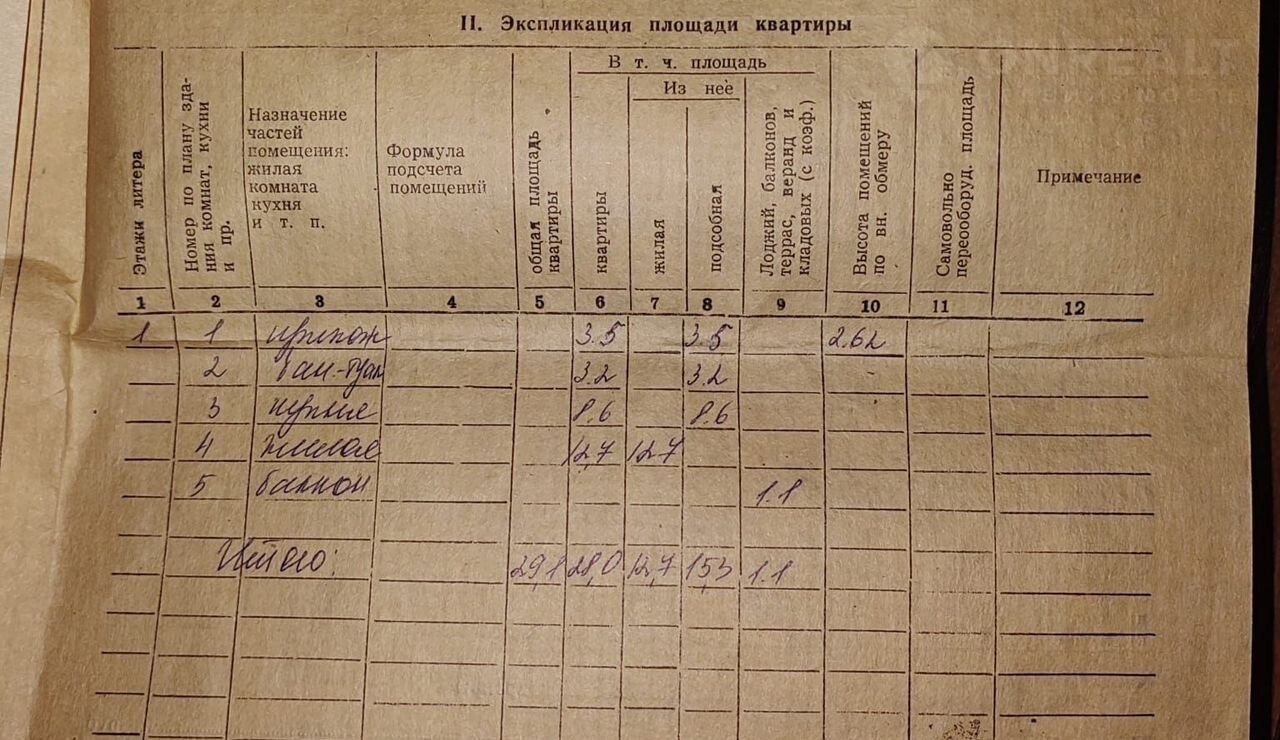 II. Экспликация площади квартиры
Этажи литера
Номер по плану зда-
ния комнат, кухни
и пр.
Назначение
частей
помещения:
жилая
комната
кухня
и т. п.
Формула
подсчета
помещений
общая площадь
квартиры
В т. ч. площадь
квартиры
Из неё
жилая
подсобная
Лоджий, балконов,
террас, веранд и
кладовых (с коэф.)
Высота помещений
по вн. обмеру
Самовольно
переоборуд. площадь
Примечание
1 2 3 4 5 6 7 8 9 10 11 12
1 1 прихож 3.5 3.5 2.62
2 Ван-туал 3.2 3.2
3 кухня 8.6 8.6
4 жилая 12,7 12.7
5 балкон 1.1
Итого: 29,1 28,0 12,7 15,3 1.1